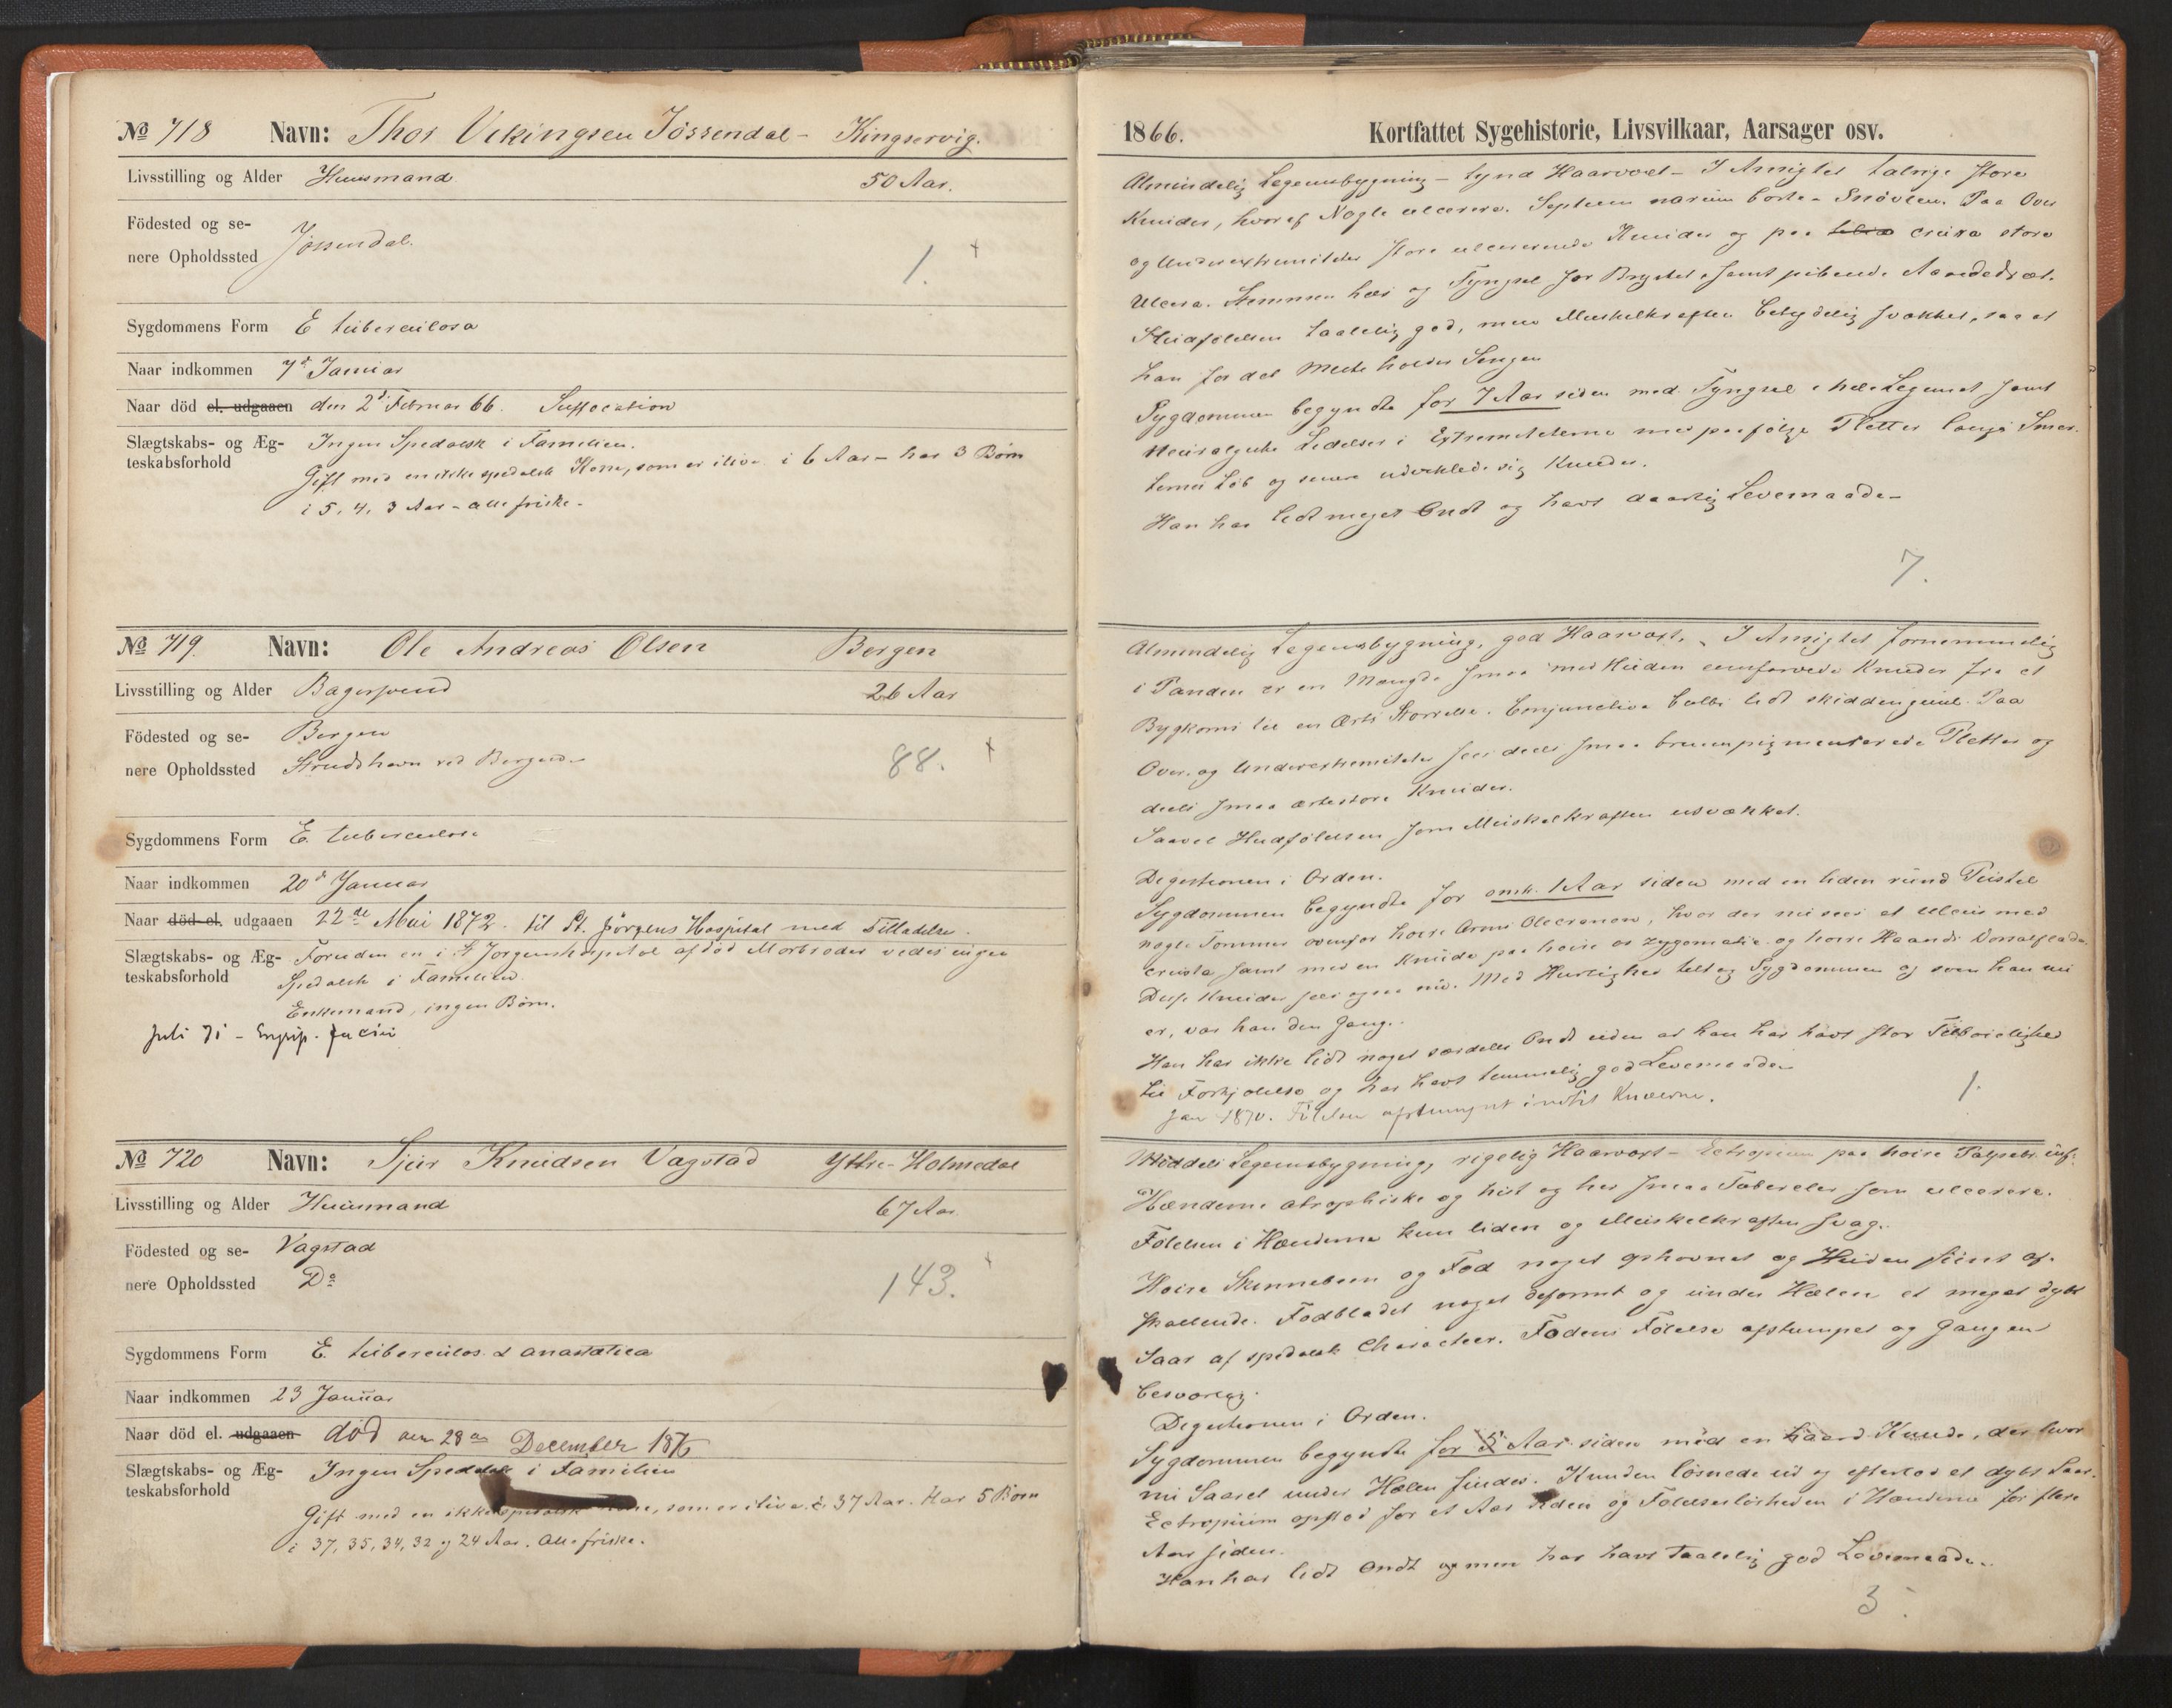 № 718 Navn: Thos Vikingsen Jössendal - Kingservig.
Livsstilling og Alder Huusmand 50 Aar.
Födested og se-
nere Opholdssted Jössendal. 1. +
Sygdommens Form E tuberculosa
Naar indkommen 7de Januar
Naar död el. udgaaen den 2de Februar 66. Suffocation
Slægtskabs- og Æg- Ingen Spedalsk i Familien.
teskabsforhold Gift med en ikke spedalsk Kone, som er ilive i 6 Aar - har 3 Börn
i 5, 4, 3 Aar - alle friske -
№ 719. Navn: Ole Andreas Olsen Bergen
Livsstilling og Alder Bagersvend 26 Aar
Födested og se- Bergen
nere Opholdssted Strudshavn ved Bergen - 88. +
Sygdommens Form E. tuberculosa
Naar indkommen 20de Januar
Naar död el. udgaaen 22de Mai 1872. til St. Jörgens Hospital med Tilladelse.
Slægtskabs- og Æg- Foruden en i St Jörgenshospital afdöd Morbroder vedes ingen
teskabsforhold Spedalsk i Familien
Enkemand, ingen Börn.
Juli 71 - Erysip. faciei
№ 720 Navn: Sjur Knudsen Vagstad Yttre-Holmedal
Livsstilling og Alder Huusmand 67 Aar
Födested og se- Vagstad
nere Opholdssted Do 143. +
Sygdommens Form E. tuberculos. & anæsthetica
Naar indkommen 23 Januar
Naar död el. udgaaen död den 28de December 187
Slægtskabs- og Æg- Ingen Spedalsk i Familien
teskabsforhold Gift med en ikke spedalsk Kone, som er ilive i 37 Aar. Har 5 Börn
i 37, 35, 34, 32 og 24 Aar. Alle friske.
1866. Kortfattet Sygehistorie, Livsvilkaar, Aarsager osv.
Almindelig Legemsbygning - tynd Haarvæxt - I Ansigtet talrige store
Knuder, hvoraf Nogle ulcerere. Septum narium borte - Snövlen. Paa Over
og Underextremiteter store ulcererende Knuder og paa crura store
Ulcera. Stemmen hæs og Tyngsel for Brystet, samt pibende Aandedræt.
Hudfölelsen taalelig god, men Muskelkraften betydelig svækket, saa at
han for det Meste holder Sengen
Sygdommen begyndte for 7 Aar siden med Tyngsel i hele Legemet samt
neuralgiske Lidelser i Extremiteterne med paafölge Pletter langs Smer-
ternes Löb og senere udviklede sig Knuder.
Han har lidt meget Ondt og havt daarlig Levemaade -
7.
Almindelig Legemsbygning, god Haarvæxt. - I Ansigtet fornemmelig
i Panden er en Mængde smaa med Huden eensfarvede Knuder fra et
Bygkorns til en Ærts Störrelse. Conjunctiva bulbi lidt skiddengul. Paa
Over- og Underextremiteter sees deels smaa bruunpigmenterede Pletter og
deels smaa ærtestore Knuder.
Saavel Hudfölelsen som Muskelkraften usvækket.
Digestionen i Orden.
Sygdommen begyndte for omtr. 1 Aar siden med en liden rund Pustel
nogle Tommer ovenfor höire Arms Olecranon, hvor der nu sees et Ulcus med
crusta samt med en Knude paa höire os zygomatic. og höire Haands Dorsalflade.
Disse Knuder sees ogsaa nu. Med Hurtighed tiltog Sygdommen og som han nu
er, var han den Gang.
Han har ikke lidt noget særdeles Ondt uden at han har havt stor Tilböielighed
til Forkjölelse og har havt temmelig god Levemaade -
Jan 1870. Fölelsen afstumpet indtil Knæerne. 1.
Middels Legemsbygning, rigelig Haarvæxt - Ectropium paa höire Palpebr. inf.
Hænderne atrophiske og hist og her smaa Tubercler som ulcerere.
Fölelsen i Hænderne kun liden og Muskelkraften svag.
Höire Skinnebeen og Fod noget ophovnet og Huden fiint af-
skallende. Fodbladet noget deformt og under Hælen et meget dybt
Saar af spedalsk Characteer. Fodens Fölelse afstumpet og Gangen
besværlig.
Digestionen i Orden.
Sygdommen begyndte for 5 Aar siden med en haard Knude, der hvor
nu Saaret under Hælen findes. Knuden lösnede ud og efterlod et dybt Saar.
Ectropium opstod for et Aar siden og Fölelseslösheden i Hænderne for flere
Aar siden.
Han har lidt Ondt men har havt taalelig god Levemaade -
3.